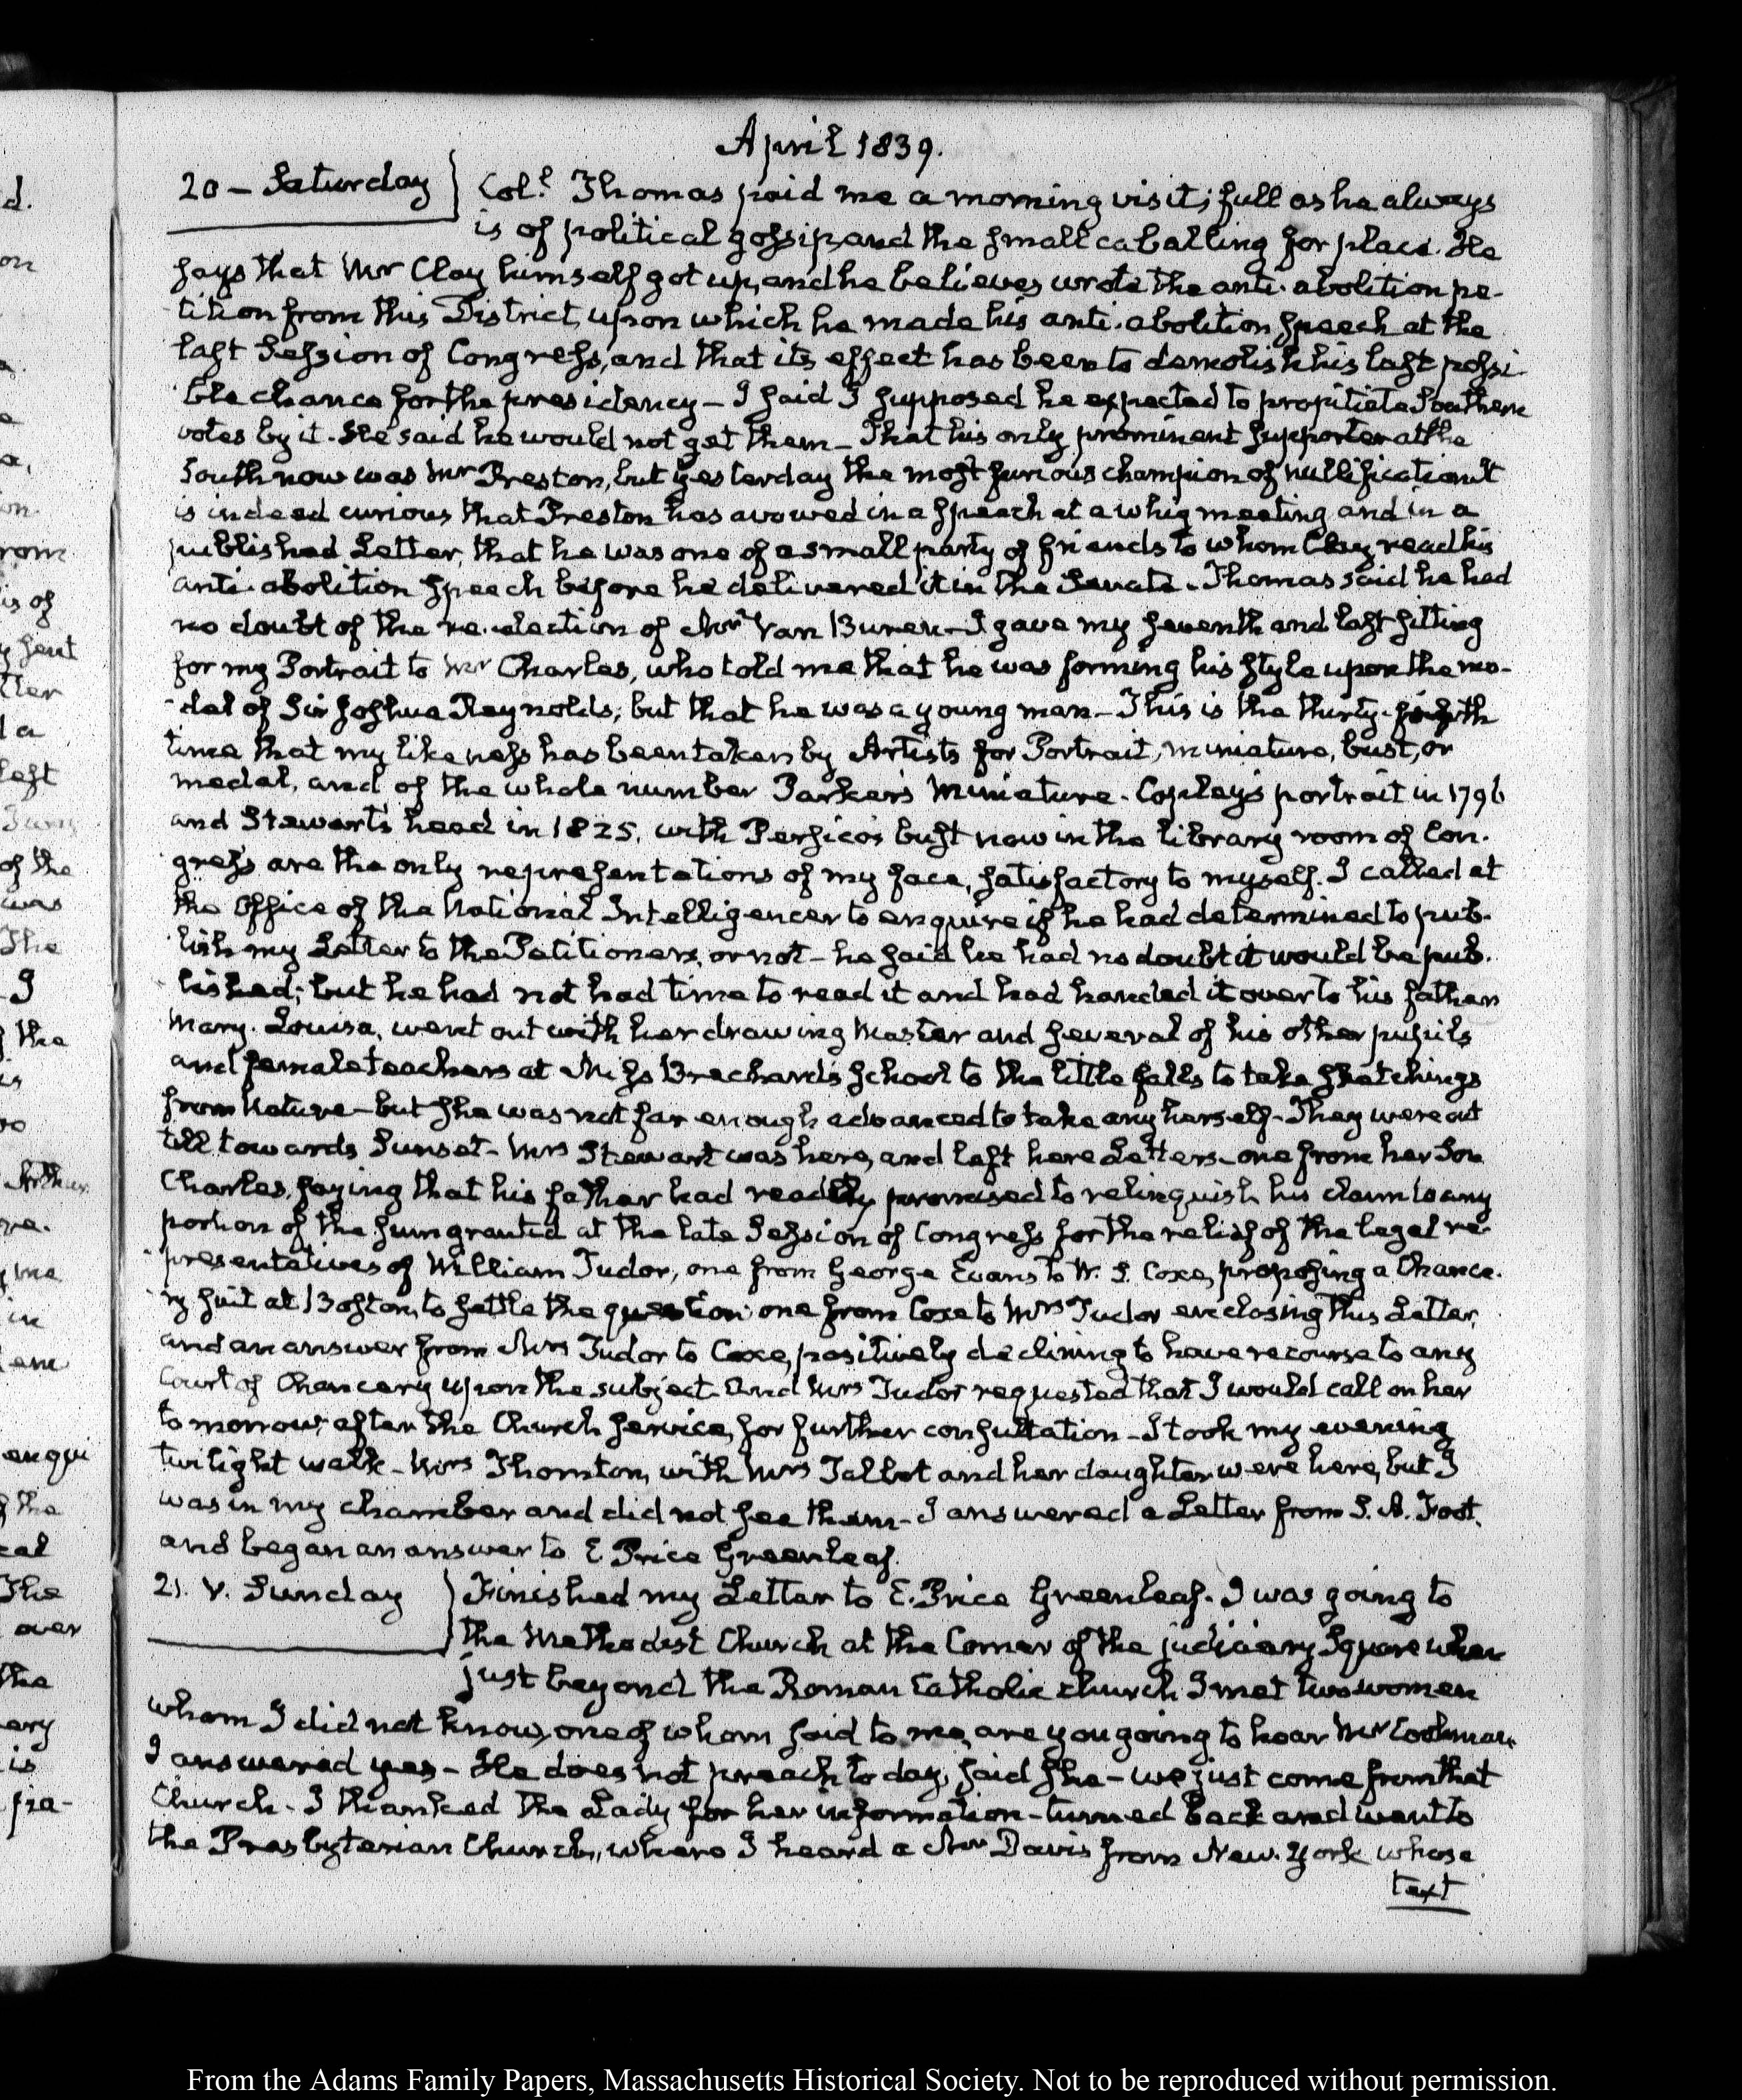 April 1839.
20 – Saturday
Col.l Thomas paid me a morning visit; full as he always
is of political gossip, and the small caballing for place. He
says that Mr Clay himself got up, and he believes wrote the anti-abolition pe-
tition from this District, upon which he made his anti-abolition speech at the
last Session of Congress, and that its effect has been to demolish his last possi-
ble chance for the presidency – I said I supposed he expected to propitiate Southern
votes by it. He said he would not get them – That his only prominent supporter at the
South now was Mr Preston, but yesterday the most furious champion of nullification It
is indeed curious that Preston has avowed in a speech at a whig meeting and in a
published Letter, that he was one of a small party of friends to whom Clay read his
anti-abolition Speech before he delivered it in the Senate. Thomas said he had
no doubt of the re-election of Mr Van Buren – I gave my seventh and last sitting
for my Portrait to Mr Charles, who told me that he was forming his style upon the mo-
-del of Sir Joshua Reynolds; but that he was a young man – This is the thirty-
time that my likeness has been taken by Artists for Portrait, miniature, bust, or
medal, and of the whole number Parker's Miniature. Copley's portrait in 1796
and Stewart's head in 1825, with Persico's bust now in the library room of Con-
gress are the only representations of my face, satisfactory to myself. I called at
the Office of the National Intelligencer to enquire if he had determined to pub-
lish my Letter to the Petitioners, or not – he said he had no doubt it would be pub-
lished; but he had not had time to read it and had handed it over to his father
Mary-Louisa, went out with her drawing Master and several of his other pupils
and female teachers at Miss Brechard's school to the little falls to take sketchings
from Nature – but she was not far enough advanced to take any herself – They were out
till towards Sunset – Mrs Stewart was here, and left here Letters – one from her Son
Charles, saying that his father had readily promised to relinquish his claim to any
portion of the sum granted at the late Session of Congress for the relief of the legal re-
-presentatives of William Tudor, one from George Evans to W. S. Coxe, proposing a Chance-
ry suit at Boston, to settle the question: one from Coxe to Mrs Tudor enclosing this Letter,
and an answer from Mrs Tudor to Coxe, positively declining to have recourse to any
Court of Chancery upon the subject. And Mrs Tudor requested that I would call on her
to morrow, after the Church service, for further consultation – I took my evening
twilight walk – Mrs Thornton, with Mrs Talbot and her daughter were here, but I
was in my chamber and did not see them – I answered a Letter from S. A. Foot,
and began an answer to E. Price Greenleaf.
21. V. Sunday
Finished my Letter to E. Price Greenleaf. I was going to
the Methodist Church at the Corner of the judiciary Square when
just beyond the Roman Catholic church I met two women
whom I did not know, one of whom said to me, are you going to hear Mr Cookman
I answered yes – He does not preach to day, said she – we just come from that
Church. I thanked the Lady for her information – turned back and went to
the Presbyterian Church, where I heard a Mr Davis from New-York whose
text
From the Adams Family Papers, Massachusetts Historical Society. Not to be reproduced without permission.